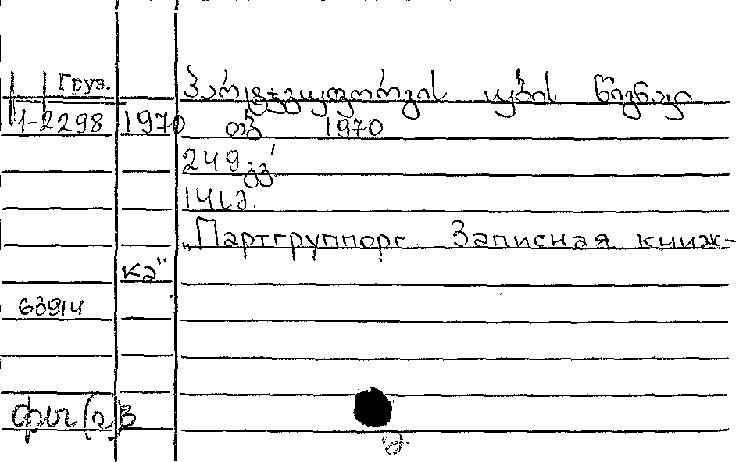 Груз.
პარტჯგუფორგის უბის წიგნაკი
1-2298 1970 თბ 1970
249 გვ
14 სმ.
„Партгруппорг. Записная книж-
ка"
63914